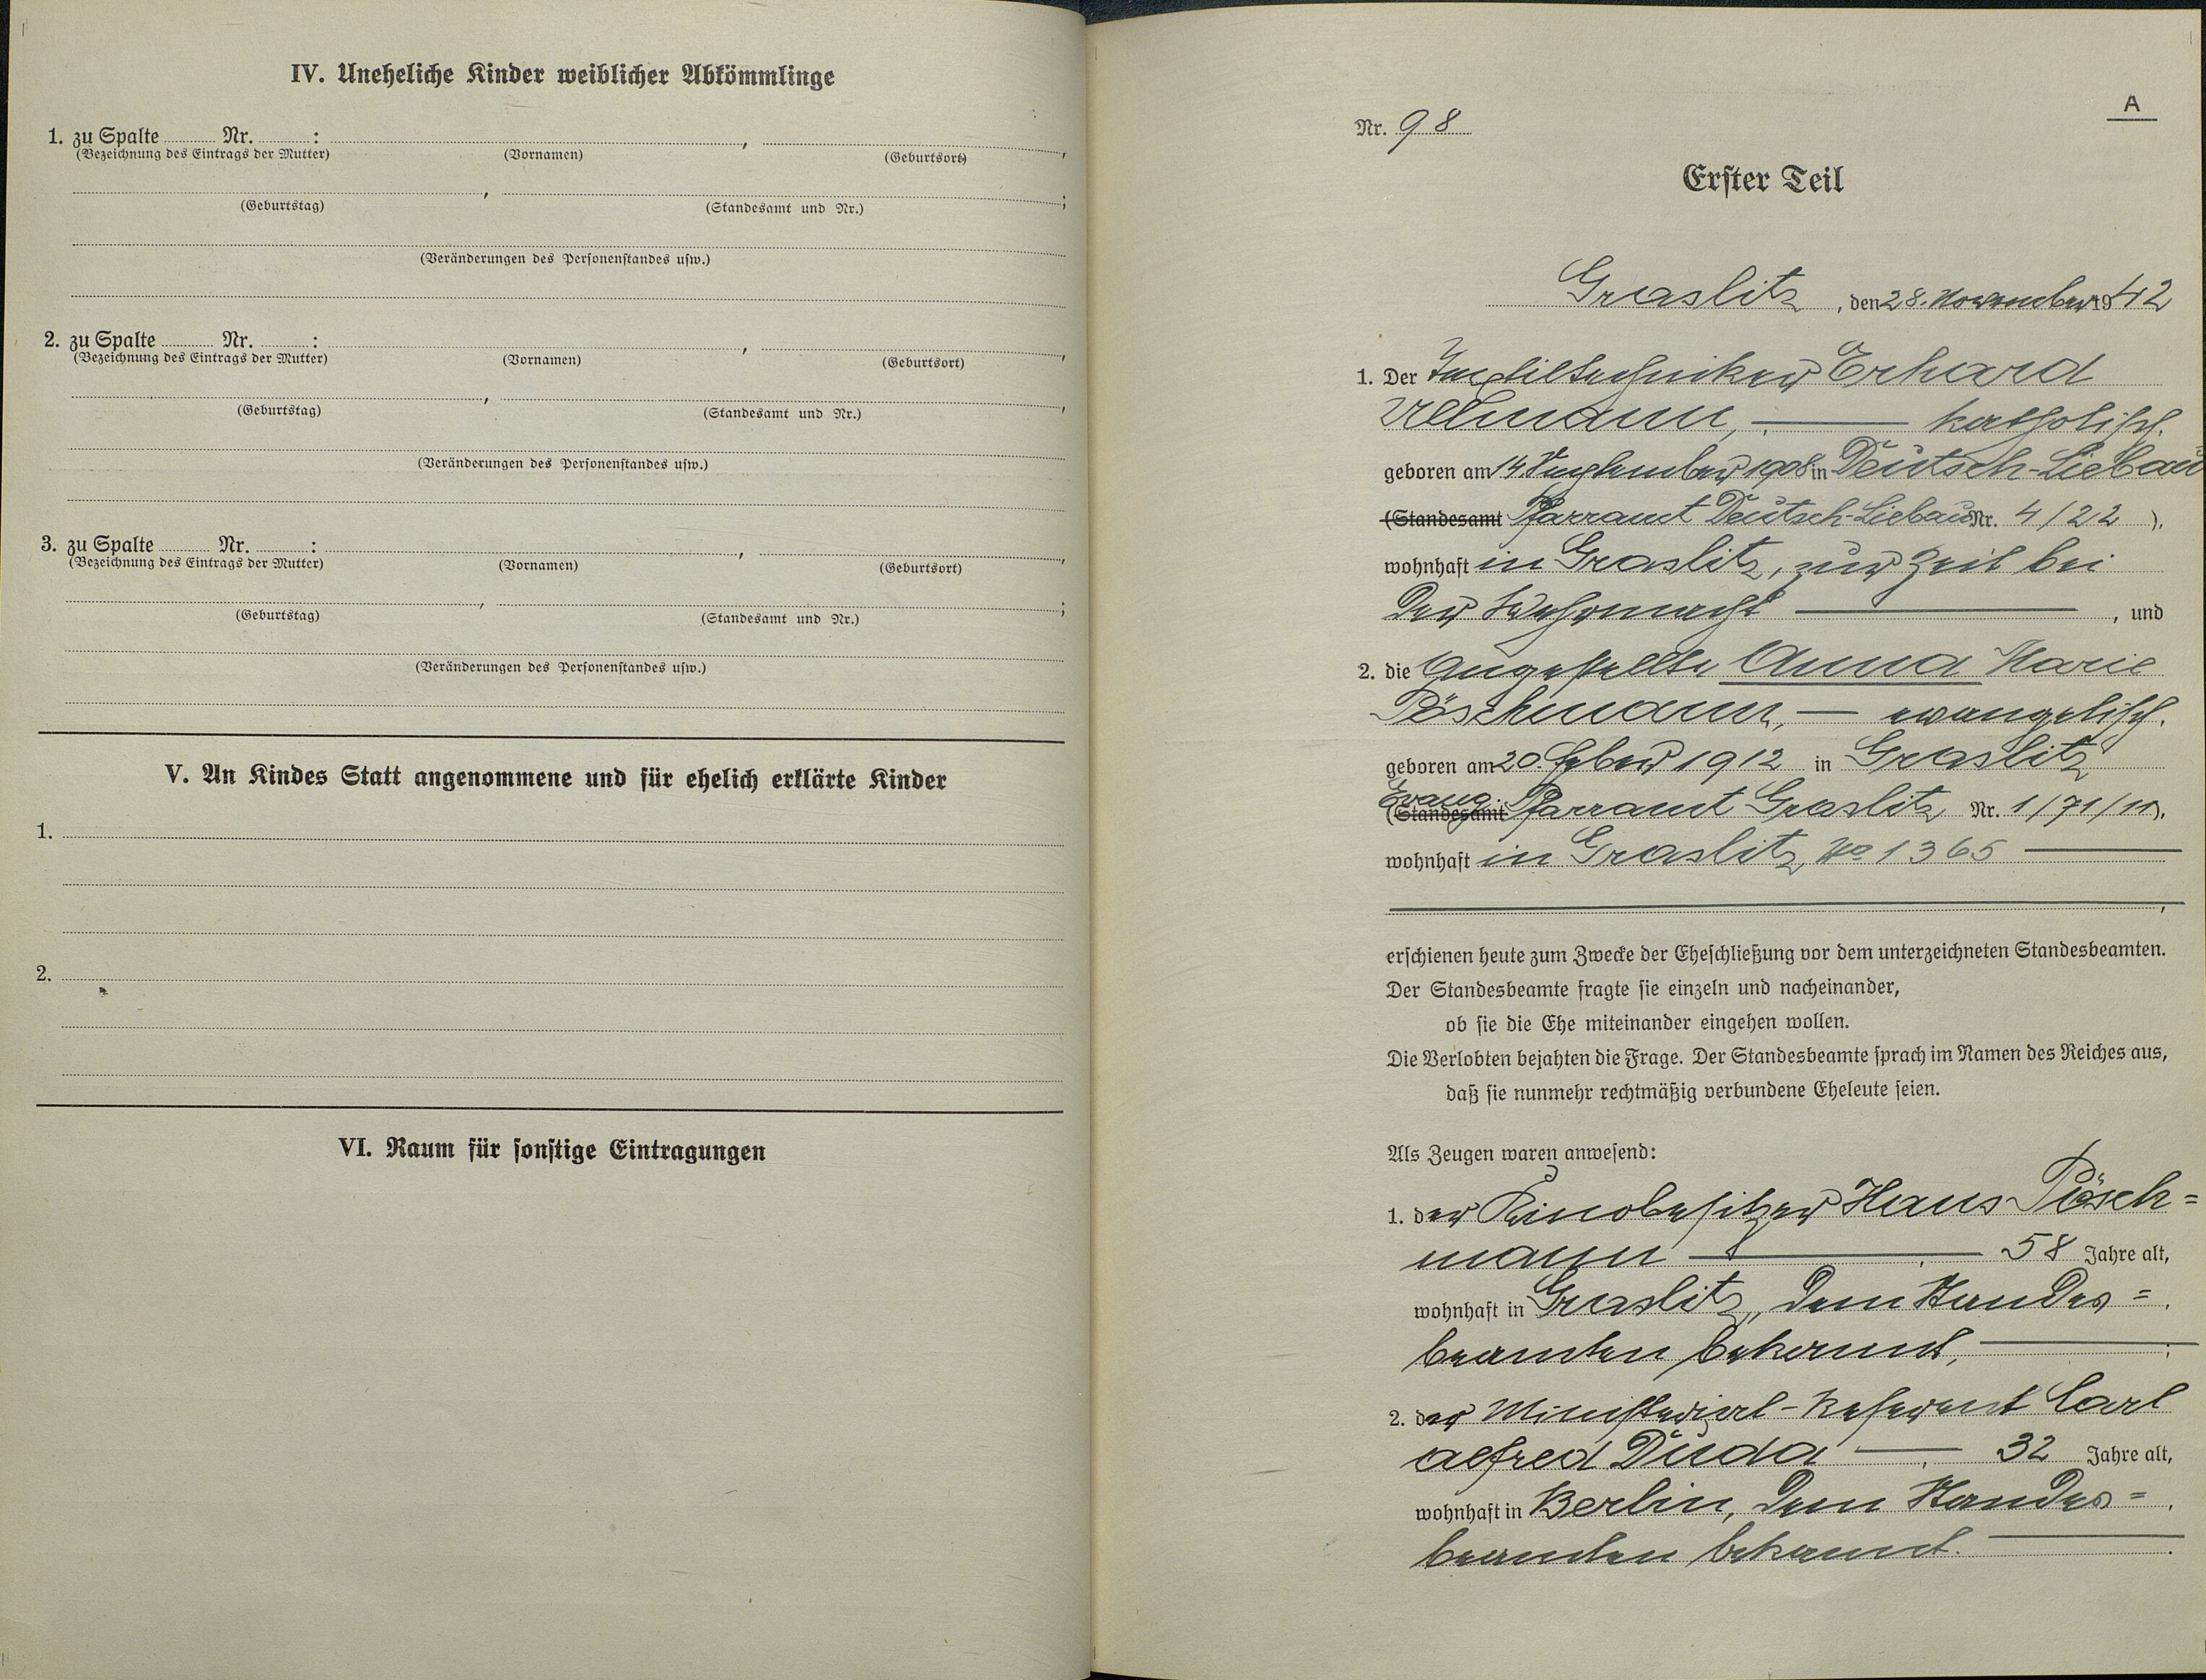 IV. Uneheliche Kinder weiblicher Abkömmlinge
1. zu Spalte ........ Nr. ........ :
(Bezeichnung des Eintrags der Mutter) (Vornamen) (Geburtsort)
(Geburtstag) (Standesamt und Nr.)
(Veränderungen des Personenstandes usw.)
2. zu Spalte ........ Nr. ........ :
(Bezeichnung des Eintrags der Mutter) (Vornamen) (Geburtsort)
(Geburtstag) (Standesamt und Nr.)
(Veränderungen des Personenstandes usw.)
3. zu Spalte ........ Nr. ........ :
(Bezeichnung des Eintrags der Mutter) (Vornamen) (Geburtsort)
(Geburtstag) (Standesamt und Nr.)
(Veränderungen des Personenstandes usw.)
V. An Kindes Statt angenommene und für ehelich erklärte Kinder
1.
2.
VI. Raum für sonstige Eintragungen
A
Nr. 98
Erster Teil
Graslitz, den 28. November 1942
1. Der Textiltechniker Erhard
Ullmann, — katholisch,
geboren am 14. September 1908 in Deutsch-Liebau
(Standesamt Pfarramt Deutsch-Liebau Nr. 4/22 ),
wohnhaft in Graslitz, zur Zeit bei
der Wehrmacht —, und
2. die Angestellte Anna Marie
Pöschmann, — evangelisch,
geboren am 20. Feber 1912 in Graslitz
Evang.
(Standesamt Pfarramt Graslitz Nr. 1/71/11),
wohnhaft in Graslitz, No 1365 —
erschienen heute zum Zwecke der Eheschließung vor dem unterzeichneten Standesbeamten.
Der Standesbeamte fragte sie einzeln und nacheinander,
ob sie die Ehe miteinander eingehen wollen.
Die Verlobten bejahten die Frage. Der Standesbeamte sprach im Namen des Reiches aus,
daß sie nunmehr rechtmäßig verbundene Eheleute seien.
Als Zeugen waren anwesend:
1. der Kinobesitzer Hans Pösch=
mann —, 58 Jahre alt,
wohnhaft in Graslitz, dem Standes=
beamten bekannt, —;
2. der Ministerial-Referent Carl
Alfred Duda —, 32 Jahre alt,
wohnhaft in Berlin, dem Standes=
beamten bekannt. —